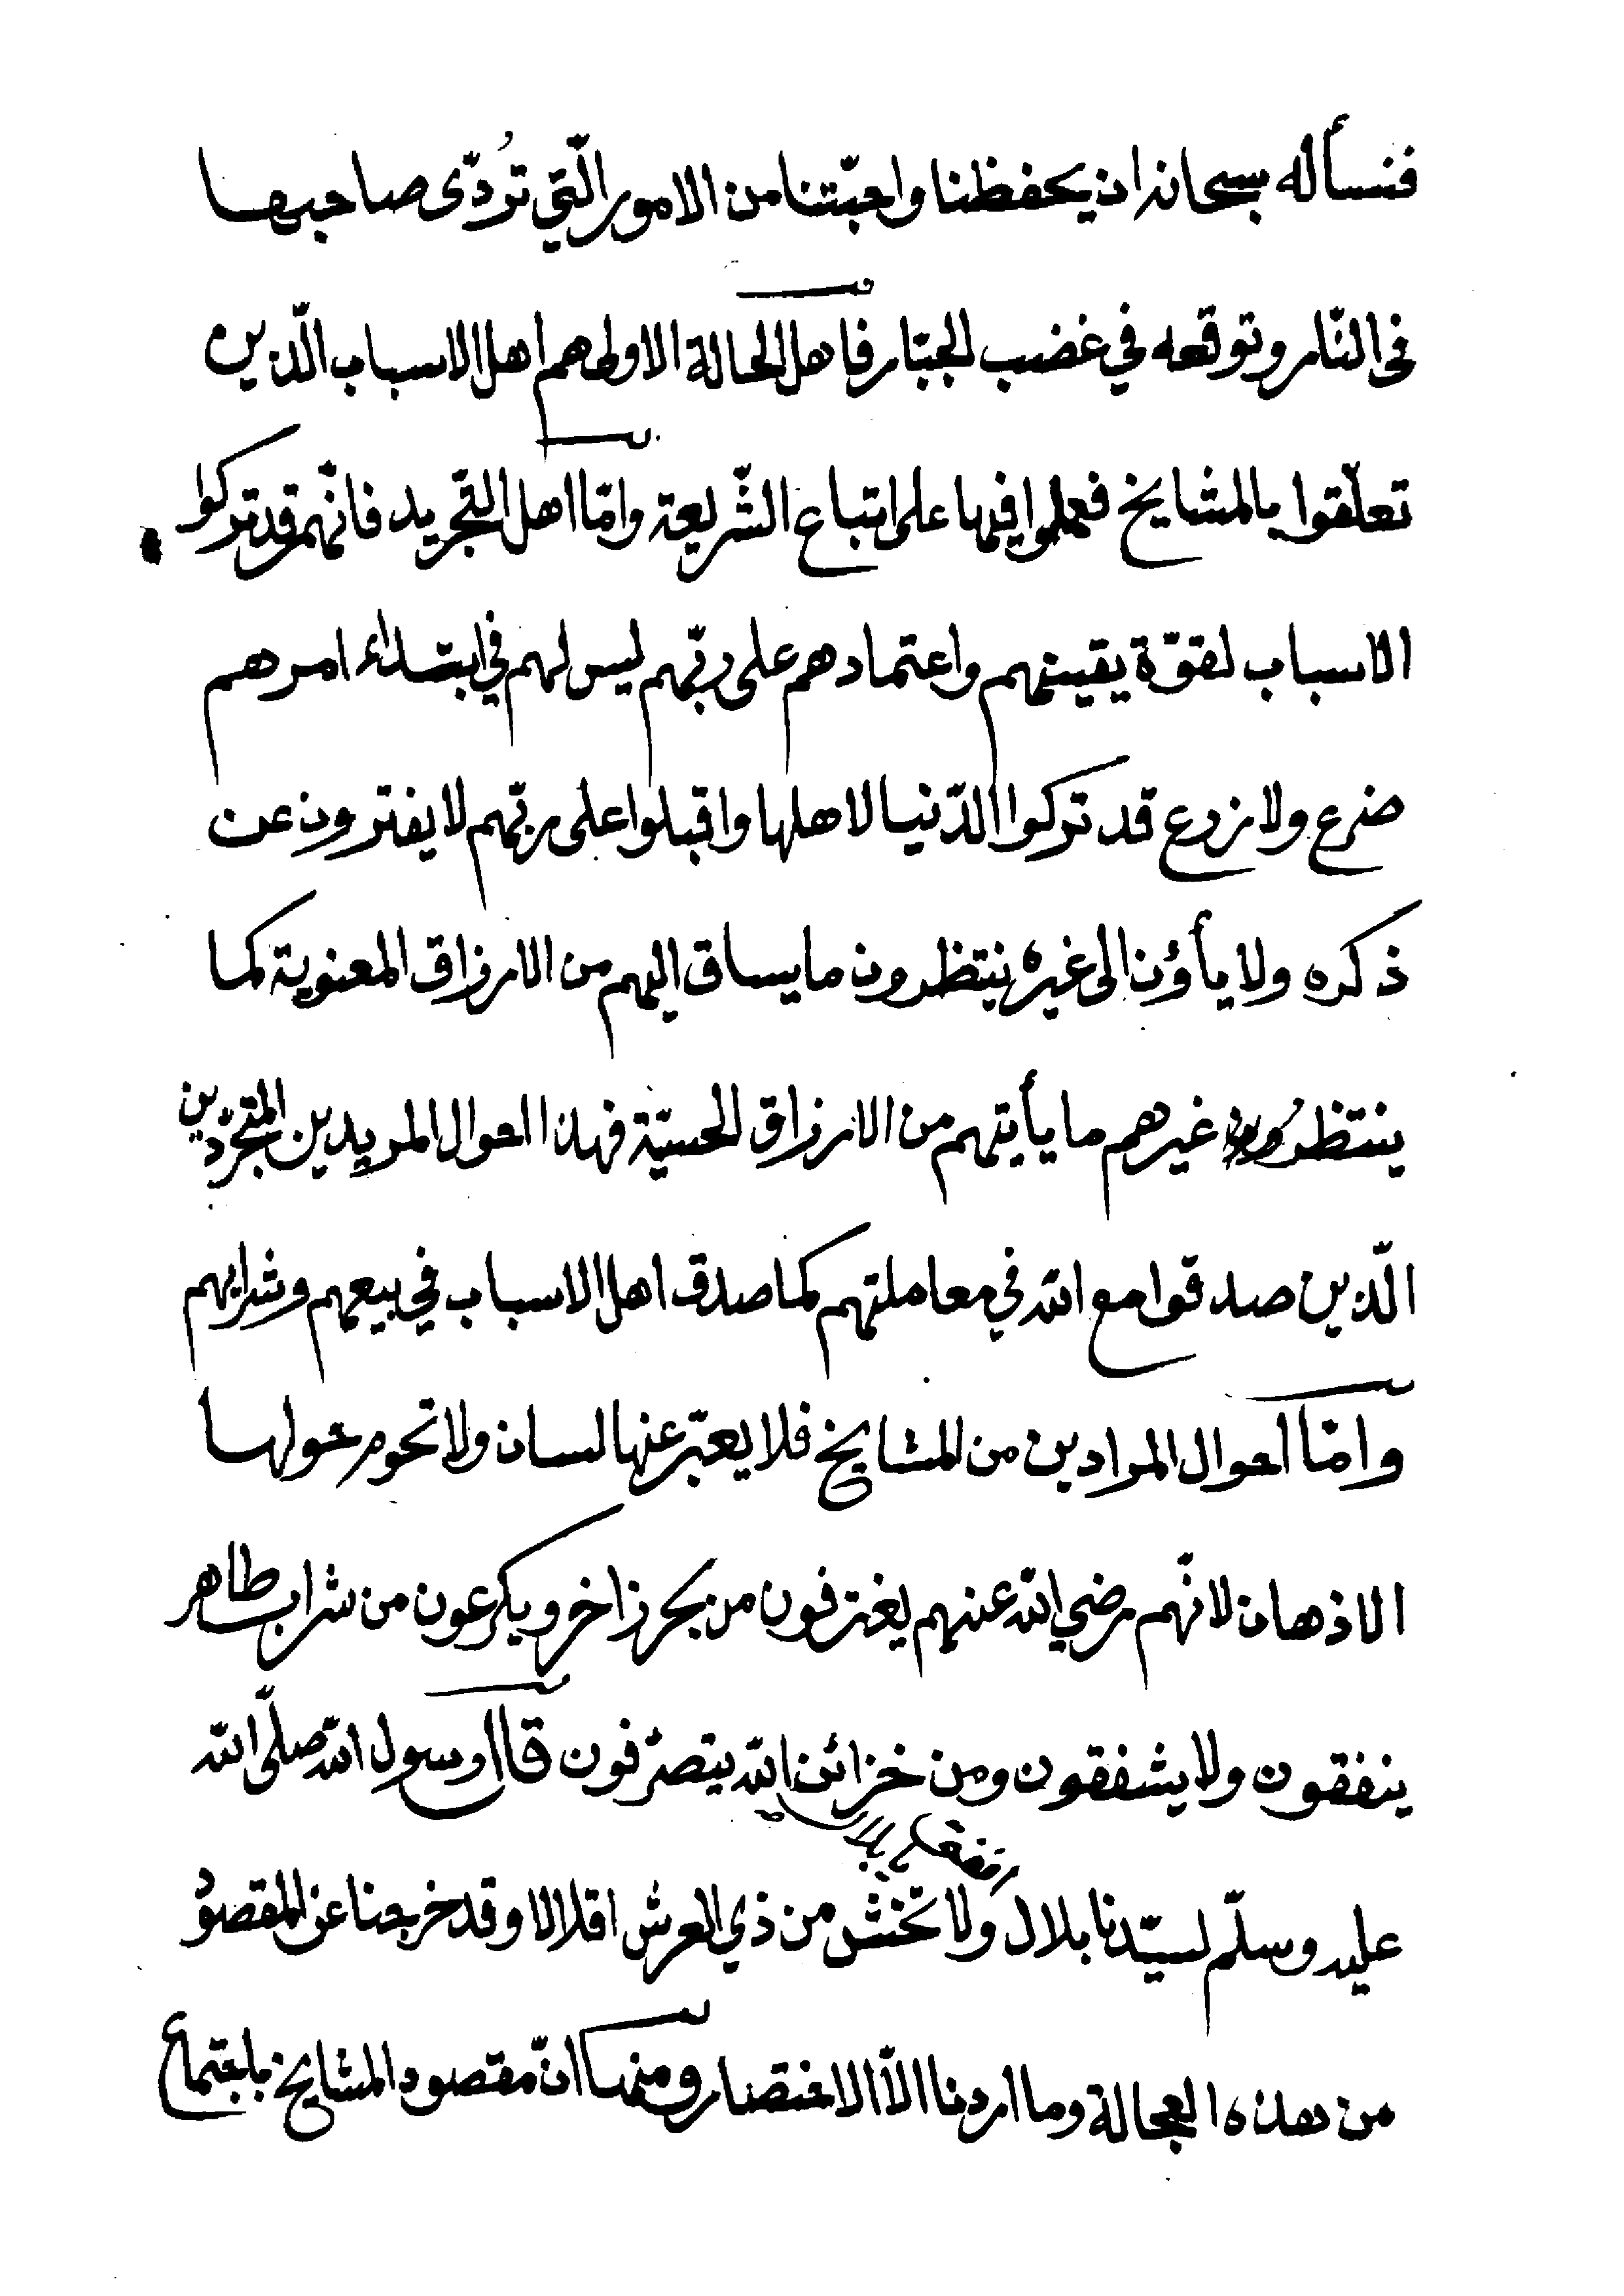 فنسأله سبحانه ان يحفظنا واحبّتنا من الامور الّتي تُردّى صاحبها
فى النّار وتوقعه في غضب الجبّار فاهل الحالة الاولى هم اهل الاسباب الّذين
تعلّقوا بالمشايخ فعملوا فيها على اتباع الشّريعة وامّا اهل التّجريد فانّهم قد تركوا
الاسباب لقوّة يقينهم واعتمادهم على ربّهم ليس لهم في ابتداء امرهم
ضرع ولا زرع قد تركوا الدّنيا لاهلها واقبلوا على ربّهم لا يفترون عن
ذكره ولا يأوُن الى غيره ينتظرون ما يساق اليهم من الارزاق المعنوية كما
ينتظرُون غيرهم ما يأيتهم من الارزاق الحسيّة فهذا احوال المريدين المتجرّدين
الّذين صدقوا مع الله في معاملتهم كما صدق اهل الاسباب في بيعهم وشرايهم
وامّا احوال المرادين من المشايخ فلا يعبّر عنها لسان ولا تحوم حولها
الاذهان لانّهم رضي الله عنهم يغترفون من بحر زاخر ويكرعون من شراب طاهر
ينفقون ولا يشفقون ومن خزائن الله يتصرّفون قال رسول الله صلّى الله
عليه وسلّم لسيّدنا بلال ولا تخش من ذي العرش اقلالا وقد خرجنا عن المقصوُد
من هذه العجالة وما اردنا الاّ الاختصار ومنها انّ مقصود المشايخ باجتماع